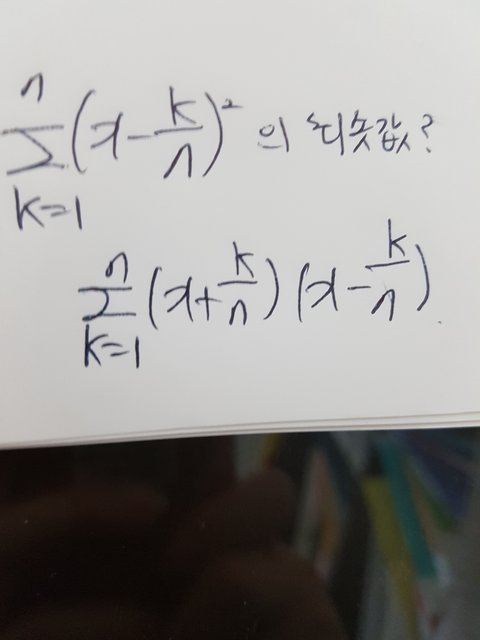 \sum_{k=1}^{n} (x - \frac{k}{n})^2 의 최솟값?
\sum_{k=1}^{n} (x + \frac{k}{n})(x - \frac{k}{n})